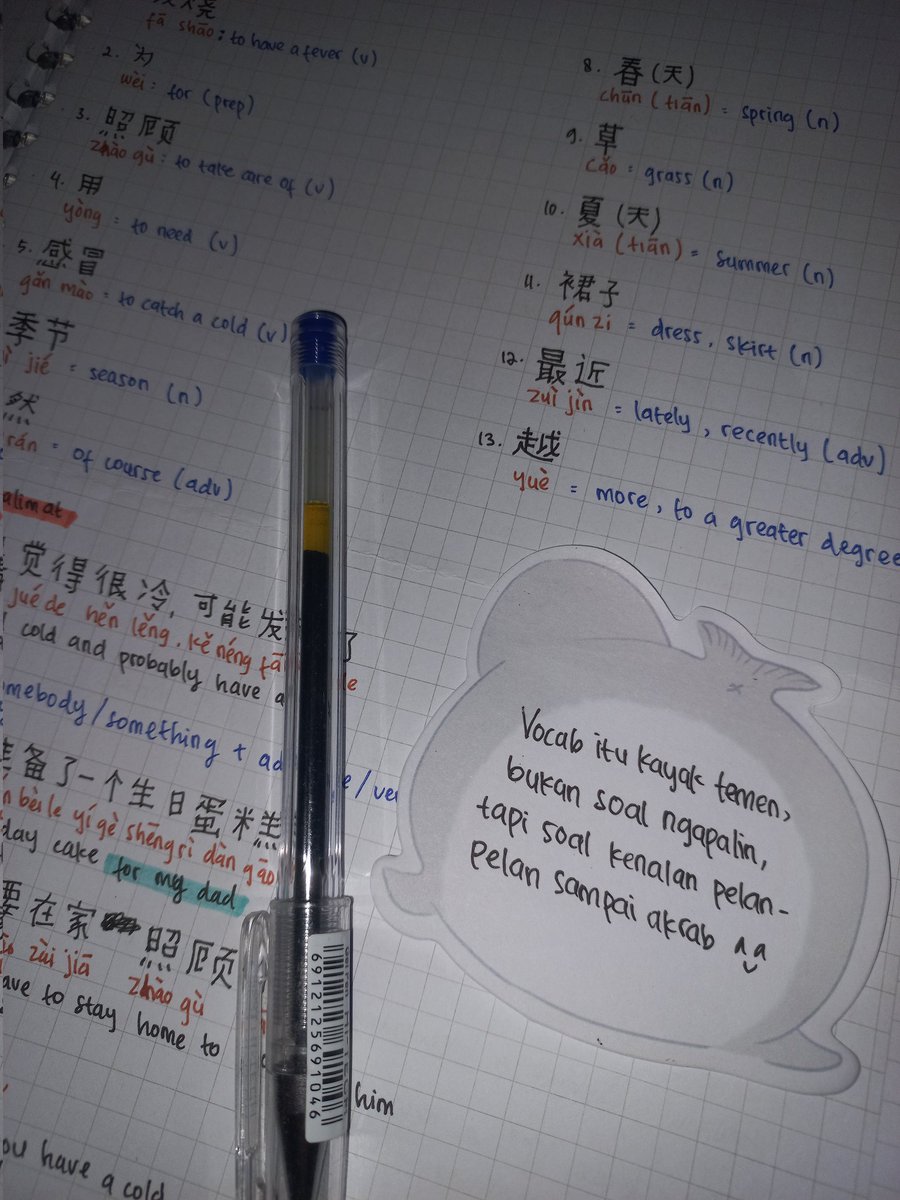 fā shāo : to have a fever (v)
2. 为
wèi : for (prep)
3. 照顾
zhào gù : to take care of (v)
4. 用
yòng = to need (v)
5. 感冒
gǎn mào = to catch a cold (v)
季节
jié = season (n)
然
rán = of course (adv)
alimat
觉得很冷, 可能发 了
jué de hěn lěng, kě néng fā le
cold and probably have a
omebody/something + ad e/ve
备了一个生日蛋糕
bèi le yí gè shēng rì dàn gāo
day cake for my dad
要在家 照顾
zài jiā zhào gù
ave to stay home to
him
ou have a cold
8. 春 (天)
chūn (tiān) = spring (n)
9. 草
cǎo = grass (n)
10. 夏 (天)
xià (tiān) = summer (n)
11. 裙子
qún zi = dress, skirt (n)
12. 最近
zuì jìn = lately, recently (adv)
13. 越
yuè = more, to a greater degree
Vocab itu kayak temen,
bukan soal ngapalin,
tapi soal kenalan pelan-
pelan sampai akrab ^^
6912125691046